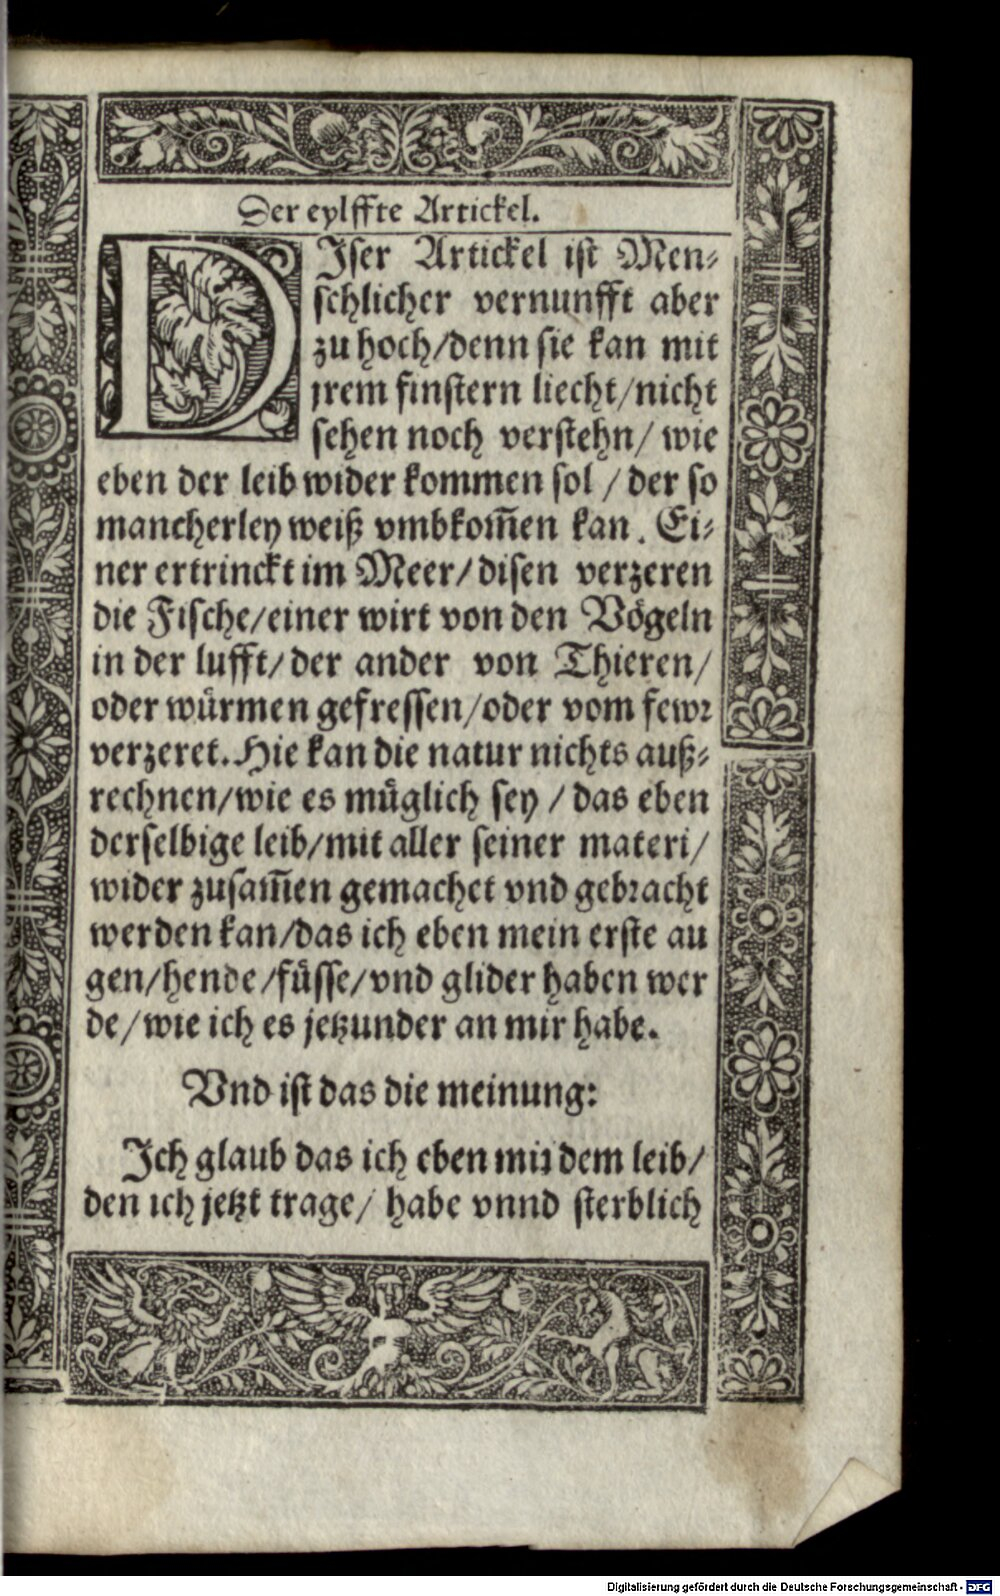 Der eylffte Artickel.
DIser Artickel ist Men-
schlicher vernunfft aber
zu hoch/denn sie kan mit
jrem finstern liecht/nicht
sehen noch verstehn/ wie
eben der leib wider kommen sol / der so
mancherley weiß vmbkom̃en kan. Ei-
ner ertrinckt im Meer/disen verzeren
die Fische/einer wirt von den Vögeln
in der lufft/der ander von Thieren/
oder würmen gefressen/oder vom fewr
verzeret. Hie kan die natur nichts auß-
rechnen/wie es müglich sey / das eben
derselbige leib/mit aller seiner materi/
wider zusam̃en gemachet vnd gebracht
werden kan/das ich eben mein erste au
gen/hende/füsse/vnd glider haben wer
de/wie ich es jetzunder an mir habe.
Vnd ist das die meinung:
Ich glaub das ich eben mit dem leib/
den ich jetzt trage/ habe vnnd sterblich
Digitalisierung gefördert durch die Deutsche Forschungsgemeinschaft - DFG